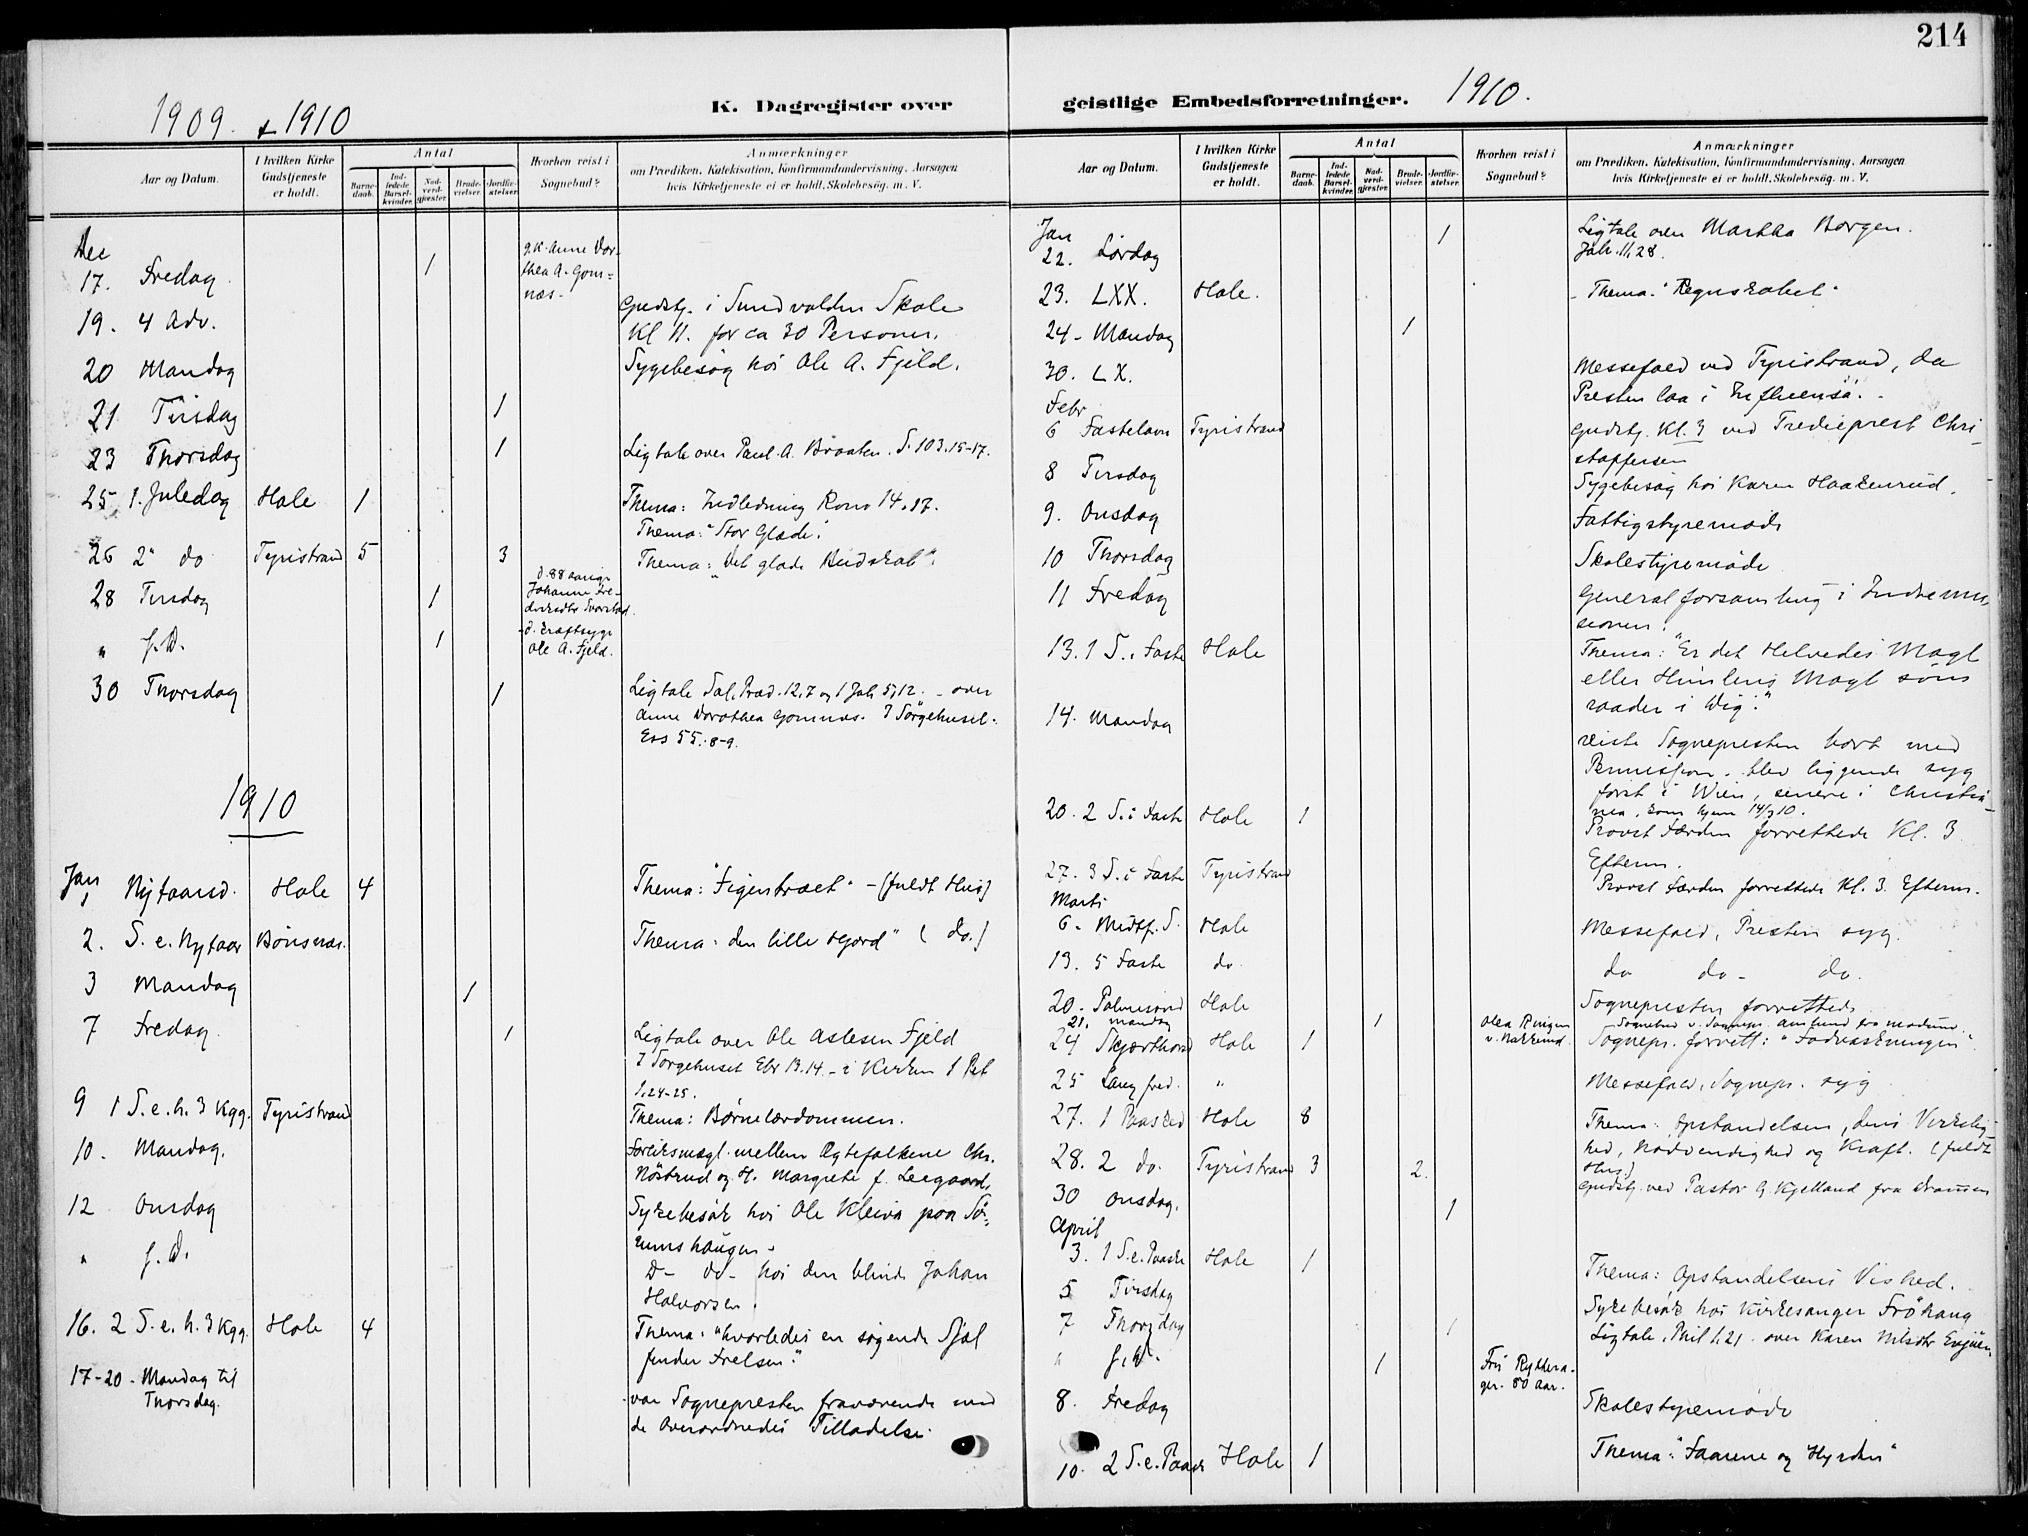 214
1909. & 1910
K. Dagregister over
geistlige Embedsforretninger.
1910.
Aar og Datum.
I hvilken Kirke Gudstjeneste er holdt.
Antal
Barnedaab.
Indledede Barselkvinder.
Nadverdgjæster.
Brudevielser.
Jordfæstelser.
Hvorhen reist i Sognebud?
Anmærkninger
om Prædiken, Katekisation, Konfirmandundervisning, Aarsagen
hvis Kirketjeneste ei er holdt, Skolebesøg, m. V.
Dec
17. Fredag 1 g.k. Anne Dorthea A. Gomnæs.
19. 4 Adv. Gudstj. i Sundvolden Skole
Kl 11. for ca 30 Personer.
20 Mandag Sygebesøg hos Ole A. Fjeld.
21 Tirsdag 1
23 Thorsdag 1 Ligtale over Paul A. Braaten. S. 103.15-17.
25 1. Juledag Hole 1 Thema: Indledning Rom 14.17.
Thema: "Stor Glæde".
26 2" do Tyristrand 5 3 Thema: "Det glade Budskab".
28 Tirsdag 1 d. 88 aarige Johanne
" s. D. 1 d. kræftsyge Ole A. Fjeld.
30 Thorsdag 1 Ligtale Sal. Præd. 12,7 og 1 Joh 5,12. - over
Anne Dorothea Gomnæs. I Sørgehuset.
Es 55.8-9.
1910
Jan
1 Nytaarsd. Hole 4 Thema: "Figentræet" - (fuldt Hus)
2. S. e. Nytaar Bønsnæs. Thema: den lille Hjord" (do.)
3 Mandag 1
7 Fredag. 1 Ligtale over Ole Aslesen Fjeld
I Sørgehuset Ebr 13.14. - i Kirken 1 Pet
1.24-25.
9 1 S. e. h. 3 Kgg. Tyristrand Thema: Børnelærdommen.
10. Mandag. Forliksmægl. mellem Ægtefolkene Chr.
og H. Margrete f. Leegaard.
12 Onsdag Sykebesøk hos Ole Kleiva paa
" s. D. D- do- hos den blinde Johan
Halvorsen.
16. 2 S. e. h. 3 Kgg. Hole 4 Thema: "hvorledes en søgende Sjæl
finder Frelsen."
17-20 - Mandag til
Thorsdag. var Sognepresten fraværende med
de Overordnedes Tilladelse.
Aar og Datum.
I hvilken Kirke Gudstjeneste er holdt.
Antal
Barnedaab.
Indledede Barselkvinder.
Nadverdgjæster.
Brudevielser.
Jordfæstelser.
Hvorhen reist i Sognebud?
Anmærkninger
om Prædiken, Katekisation, Konfirmandundervisning, Aarsagen
hvis Kirketjeneste ei er holdt, Skolebesøg, m. V.
Jan
22. Lørdag 1 Ligtale over Martha Borgen.
Joh. 11,28.
23. LXX. Hole. - Thema: "Regnskabet".
24 - Mandag 1
30. LX. Messefald ved Tyristrand, da
Presten laa i Influensa.
Febr
6 Fastelavn Tyristrand Gudstj. Kl. 3 ved Tredieprest Christoffersen
8 Tirsdag Sygebesøg hos Karen Haakenrud.
9. Onsdag Fattigstyremøde
10 Thorsdag Skolestyremøde
11 Fredag Generalforsamling i Indremissionen.
13. 1 S. i Faste Hole Thema: "Er det Helvedes Magt
eller Himlens Magt som
raader i Dig."
14. Mandag reiste Sognepresten bort med
Permission. blev liggende syg
først i Wien, senere i Christiania, kom hjem 14/3 10.
20. 2 S. i Faste Hole 1 Provst Færden forrettede Kl. 3
Efterm.
27. 3 S. i Faste Tyristrand Provst Færden forrettede Kl. 3. Efterm.
Marts
6 - Midtf. S. Hole Messefald, Presten syg.
13. 5 Faste do do do - do.
20. Palmesønd Hole Sognepresten forrettede
21. mandag 1 Olea Ringen v. Nakkerud. Sognebud v. Sognepr. Amlund fra Modum.
24 Skjærthorsd Hole 1 Sognepr. forrett: "Fodvaskningen".
25 Langfred. " Messefald, Sognepr. syg
27. 1 Paasked Hole 8 Thema: Opstandelsen, dens Virkelighed, Nødvendighed og Kraft. (fuldt
Hus.)
28. 2 do. Tyristrand 3 2. Gudstj. ved Pastor G. Kjelland fra Drammen
30 Onsdag. 1
April
3. 1 S. e. Paaske Hole 1 Thema: Opstandelsens Vished.
5 Tirsdag Sykebesøk hos Kirkesanger Frøhaug
7 Thorsdag 1 Ligtale, Phil 1.21. over Karen Nilsdtr
" s. D. 1 Fru 80 Aar.
8. Fredag Skolestyremøde
10. 2 S. e. Paaske Hole 1 Thema: "Faarene og Hyrden"